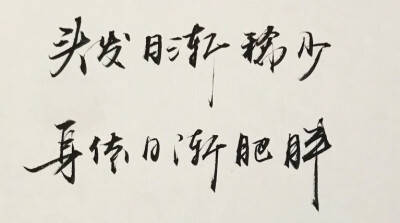 头发日渐稀少
身体日渐肥胖